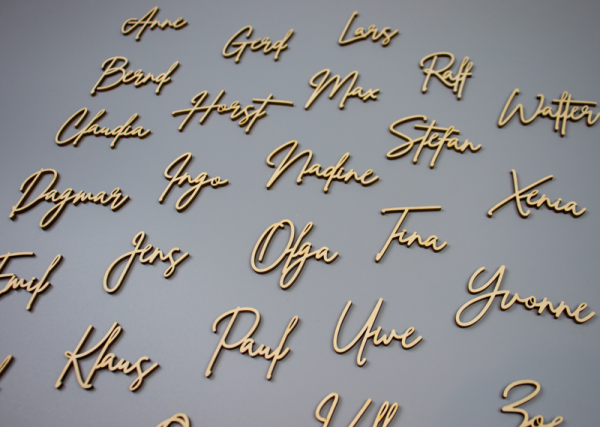 Anne Gerd Lars
Bernd Horst Max Ralf Walter
Claudia Ingo Nadine Stefan Xenia
Dagmar Jens Olga Tina Yvonne
Emil Klaus Paul Uwe Zoe